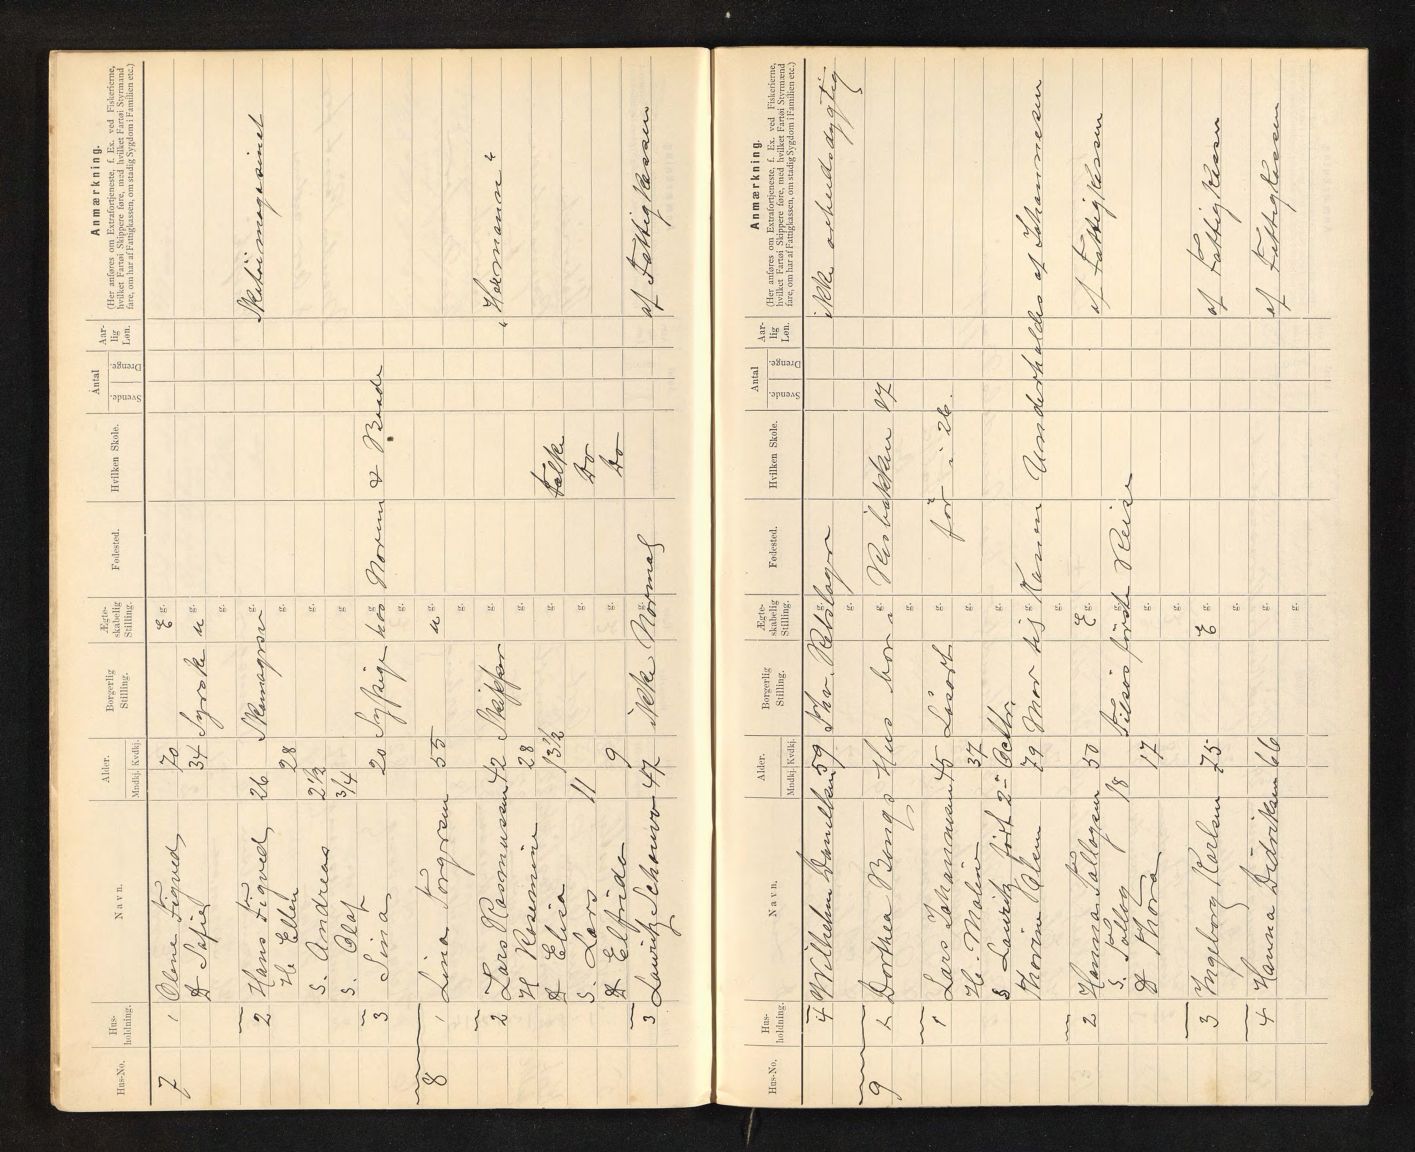 Hus-No.
Hus-holdning.
Navn.
Alder.
Mndkj. Kvdkj.
Borgerlig Stilling.
Ægte-skabelig Stilling.
Fødested.
Hvilken Skole.
Antal
Svende. Drenge.
Aar-lig Løn.
Anmærkning.
(Her anføres om Extrafortjeneste, f. Ex. ved Fiskerierne,
hvilket Fartøi Skippere føre, med hvilket Fartøi Styrmænd
fare, om har af Fattigkassen, om stadig Sygdom i Familien etc.)
7 1 Olene Figved 70 E g.
D Sofie 34 Syerske u g.
2 Hans Figved 26 Skomagersv g. Skotöimagasinet
He Ellen 28
S. Andreas 2 1/2
S. Olaf 3/4
3 Sina 20 Sypige hos Noren & Baade
8 1 Lina Torgersen 55 u g.
2 Lars Rasmussen 42 Skipper g. " Hermann "
H Rasmine 28
D Elisa 13 1/2 Falke
S. Lars 11 Do
D Elfrida 9 Do
3 Lauritz Schouvo 47 ikke Normal af Fattigkassen
Hus-No.
Hus-holdning.
Navn.
Alder.
Mndkj. Kvdkj.
Borgerlig Stilling.
Ægte-skabelig Stilling.
Fødested.
Hvilken Skole.
Antal
Svende. Drenge.
Aar-lig Løn.
Anmærkning.
(Her anføres om Extrafortjeneste, f. Ex. ved Fiskerierne,
hvilket Fartøi Skippere føre, med hvilket Fartøi Styrmænd
fare, om har af Fattigkassen, om stadig Sygdom i Familien etc.)
4 Wilhelm Danielsen 59 Fhv. Rebslager ikke arbeidsdygtig
9 Dorthea Bongs Hus bor i Risbakken 17
1 Lars Johannesen 45 Losort g.
He. Malene 37 før i 26.
S Lauritz født 2 Octbr.
Thorine Olsen 79 Mor til Konen Underholdes af Johannesen
2 Hanna Tollagsen 50 E g. af Fattigkassen
S. Tollag 18 Tilsøs første Reise
D Thora 17 g.
3 Ingeborg Karlsen 75 E g. af Fattigkassen
4 Hanna Didriksen 66 g. af Fattigkassen